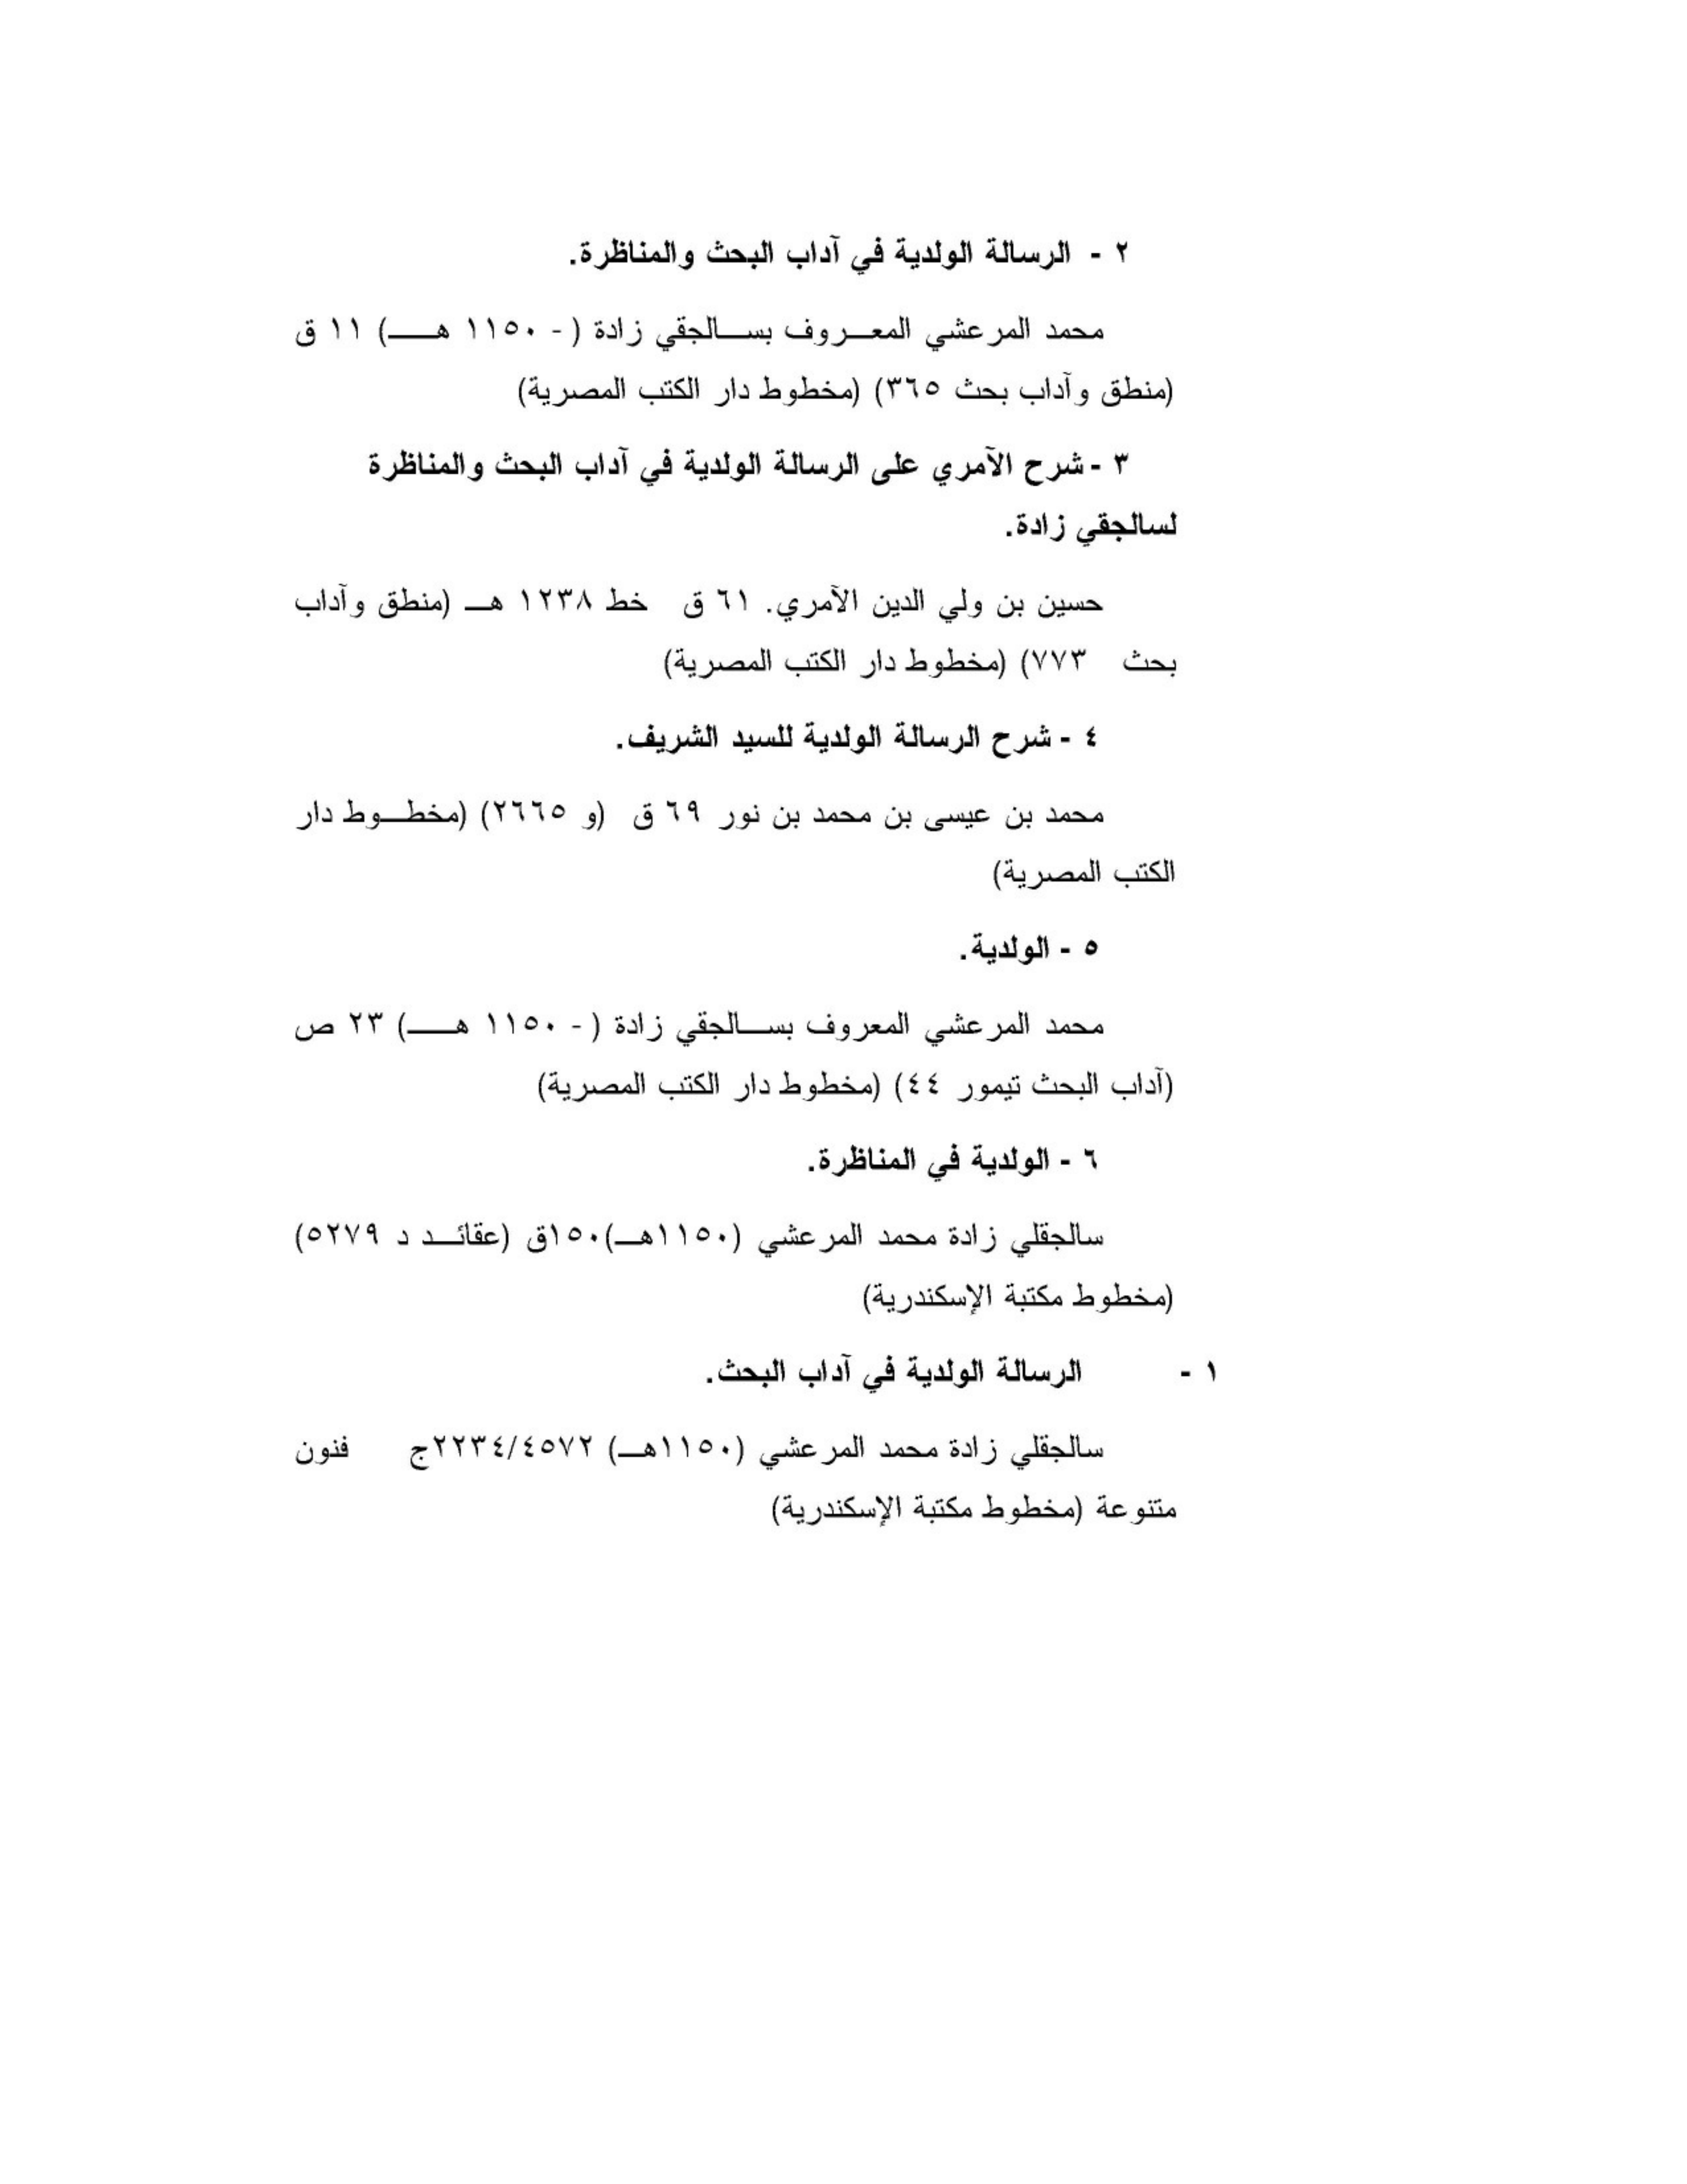 ٢ - الرسالة الولدية في آداب البحث والمناظرة.
محمد المرعشي المعـــروف بســـالجقي زادة ( - ١١٥٠ هـــــ) ١١ ق
(منطق وآداب بحث ٣٦٥) (مخطوط دار الكتب المصرية)
٣ - شرح الآمري على الرسالة الولدية في آداب البحث والمناظرة
لسالجقي زادة.
حسين بن ولي الدين الآمري. ٦١ ق خط ١٢٣٨ هـــ (منطق وآداب
بحث ٧٧٣) (مخطوط دار الكتب المصرية)
٤ - شرح الرسالة الولدية للسيد الشريف.
محمد بن عيسى بن محمد بن نور ٦٩ ق (و ٢٦٦٥) (مخطـــوط دار
الكتب المصرية)
٥ - الولدية.
محمد المرعشي المعروف بســـالجقي زادة ( - ١١٥٠ هـــــ) ٢٣ ص
(آداب البحث تيمور ٤٤) (مخطوط دار الكتب المصرية)
٦ - الولدية في المناظرة.
سالجقلي زادة محمد المرعشي (١١٥٠هـــ)١٥٠ق (عقائـــد د ٥٢٧٩)
(مخطوط مكتبة الإسكندرية)
١ - الرسالة الولدية في آداب البحث.
سالجقلي زادة محمد المرعشي (١١٥٠هـــ) ٢٢٣٤/٤٥٧٢ج فنون
متنوعة (مخطوط مكتبة الإسكندرية)